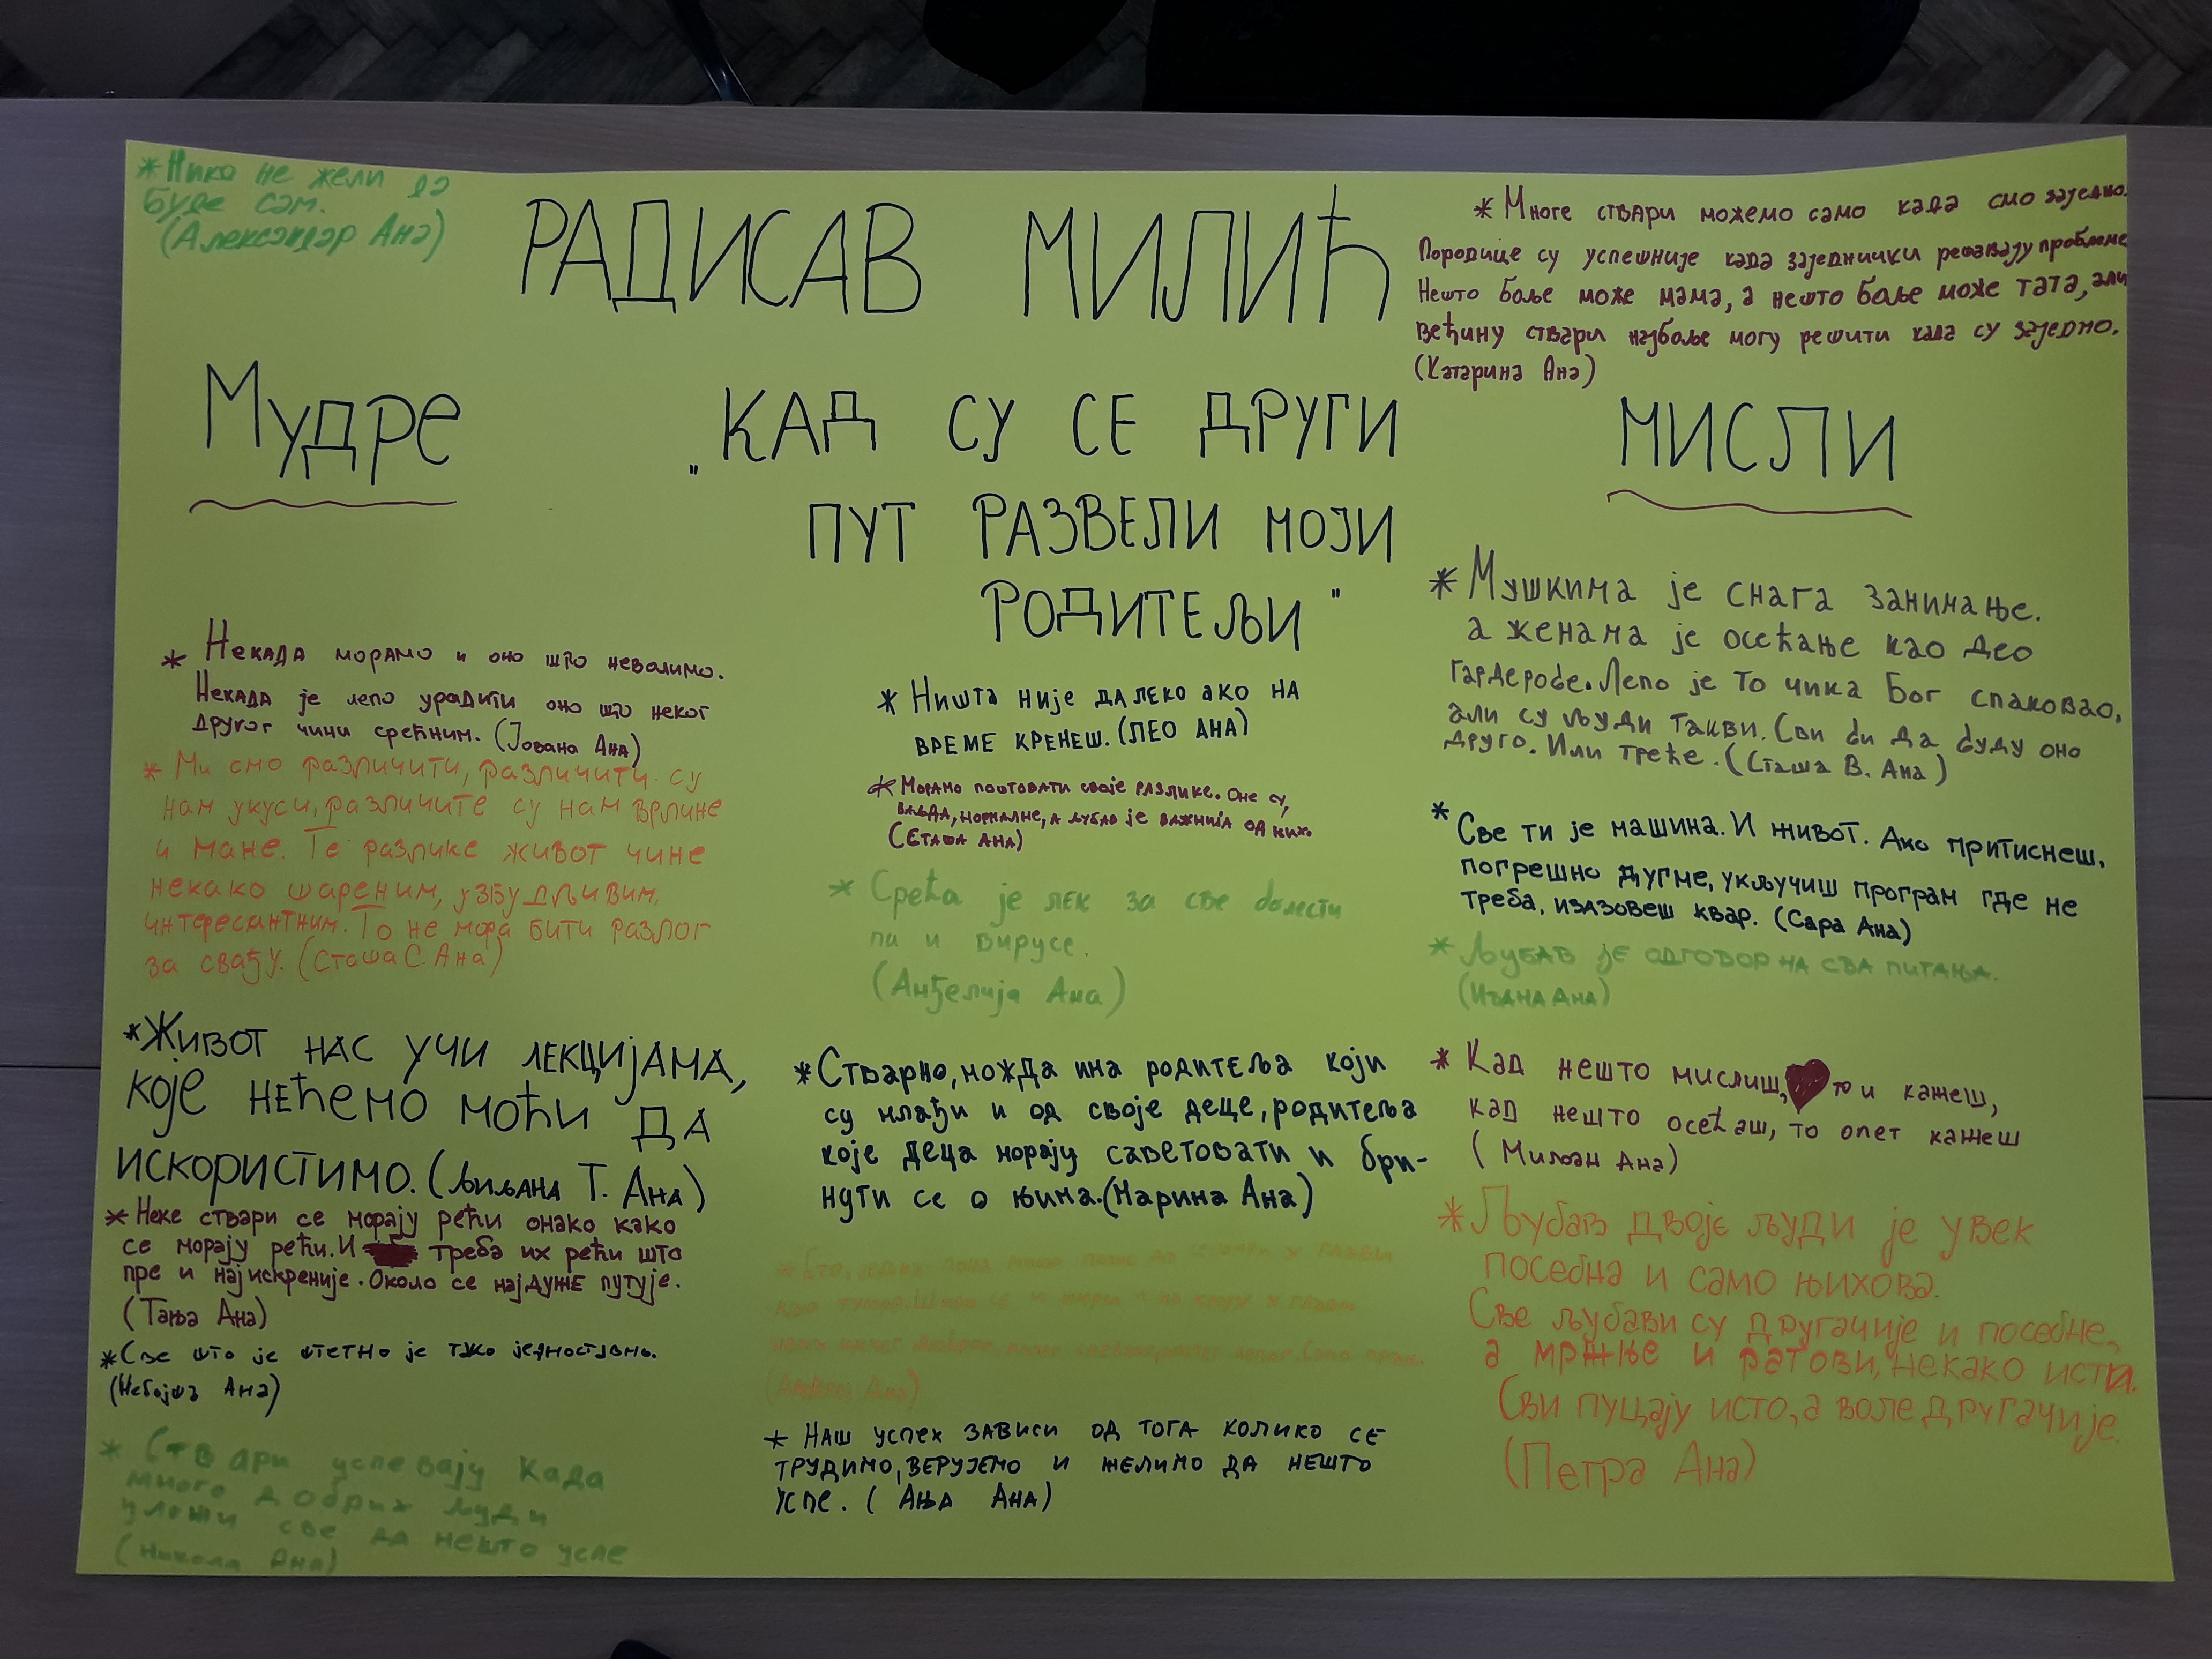 *Нико не жели да
буде сам.
(Александар Ана)
РАДИСАВ МИЛИЋ
* Многе ствари можемо само када смо заједно.
Породице су успешније када заједнички решавају проблеме
Нешто боље може мама, а нешто боље може тата, али
већину ствари најбоље могу решити када су заједно.
(Катарина Ана)
МУДРЕ
„КАД СУ СЕ ДРУГИ
ПУТ РАЗВЕЛИ МОЈИ
РОДИТЕЉИ"
МИСЛИ
* Некада морамо и оно што неволимо.
Некада је лепо урадити оно што неког
другог чини срећним. (Јована Ана)
* Ми смо различити, различити су
нам укуси, различите су нам врлине
и мане. Те разлике живот чине
некако шареним, узбудљивим,
интересантним. То не мора бити разлог
за свађу. (Сташа С. Ана)
*Живот нас учи лекцијама,
које нећемо моћи да
искористимо. (Љиљана Т. Ана)
*Неке ствари се морају рећи онако како
се морају рећи. И треба их рећи што
пре и најискреније. Около се најдуже путује.
(Тања Ана)
*Све што је штетно је тако једноставно.
(Небојша Ана)
* Ствари успевају када
много добрих људи
уложи све да нешто успе
(Никола Ана)
* Ништа није далеко ако на
време кренеш. (ЛЕО АНА)
*Морамо поштовати своје разлике. Оне су,
ваљда, нормалне, а љубав је важнија од њих.
(Сташа Ана)
* Срећа је лек за све болести
па и вирусе.
(Анђелија Ана)
*Стварно, можда има родитеља који
су млађи и од своје деце, родитеља
које деца морају саветовати и бри-
нути се о њима. (Марина Ана)
* Ето, једна
као тумор.
Ана)
* Наш успех зависи од тога колико се
трудимо, верујемо и желимо да нешто
успе. (Ања Ана)
*Мушкима је снага занимање.
а женама је осећање као део
гардеробе. Лепо је то чика Бог спаковао,
али су људи такви. Сви би да буду оно
друго. Или треће. (Сташа В. Ана)
* Све ти је машина. И живот. Ако притиснеш,
погрешно дугме, укључиш програм где не
треба, изазовеш квар. (Сара Ана)
* Љубав је одговор на сва питања.
(Ана)
* Кад нешто мислиш, то и кажеш,
кад нешто осећаш, то опет кажеш
(Милан Ана)
*Љубав двоје људи је увек
посебна и само њихова.
Све љубави су другачије и посебне,
а мржње и ратови, некако исти.
Сви пуцају исто, а воле другачије.
(Петра Ана)